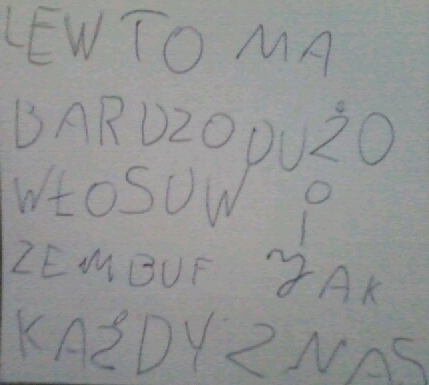 LEW TO MA
BARDZO DUŻO
WŁOSUW O I
ZEMBUF JAK
KAŻDY Z NAS